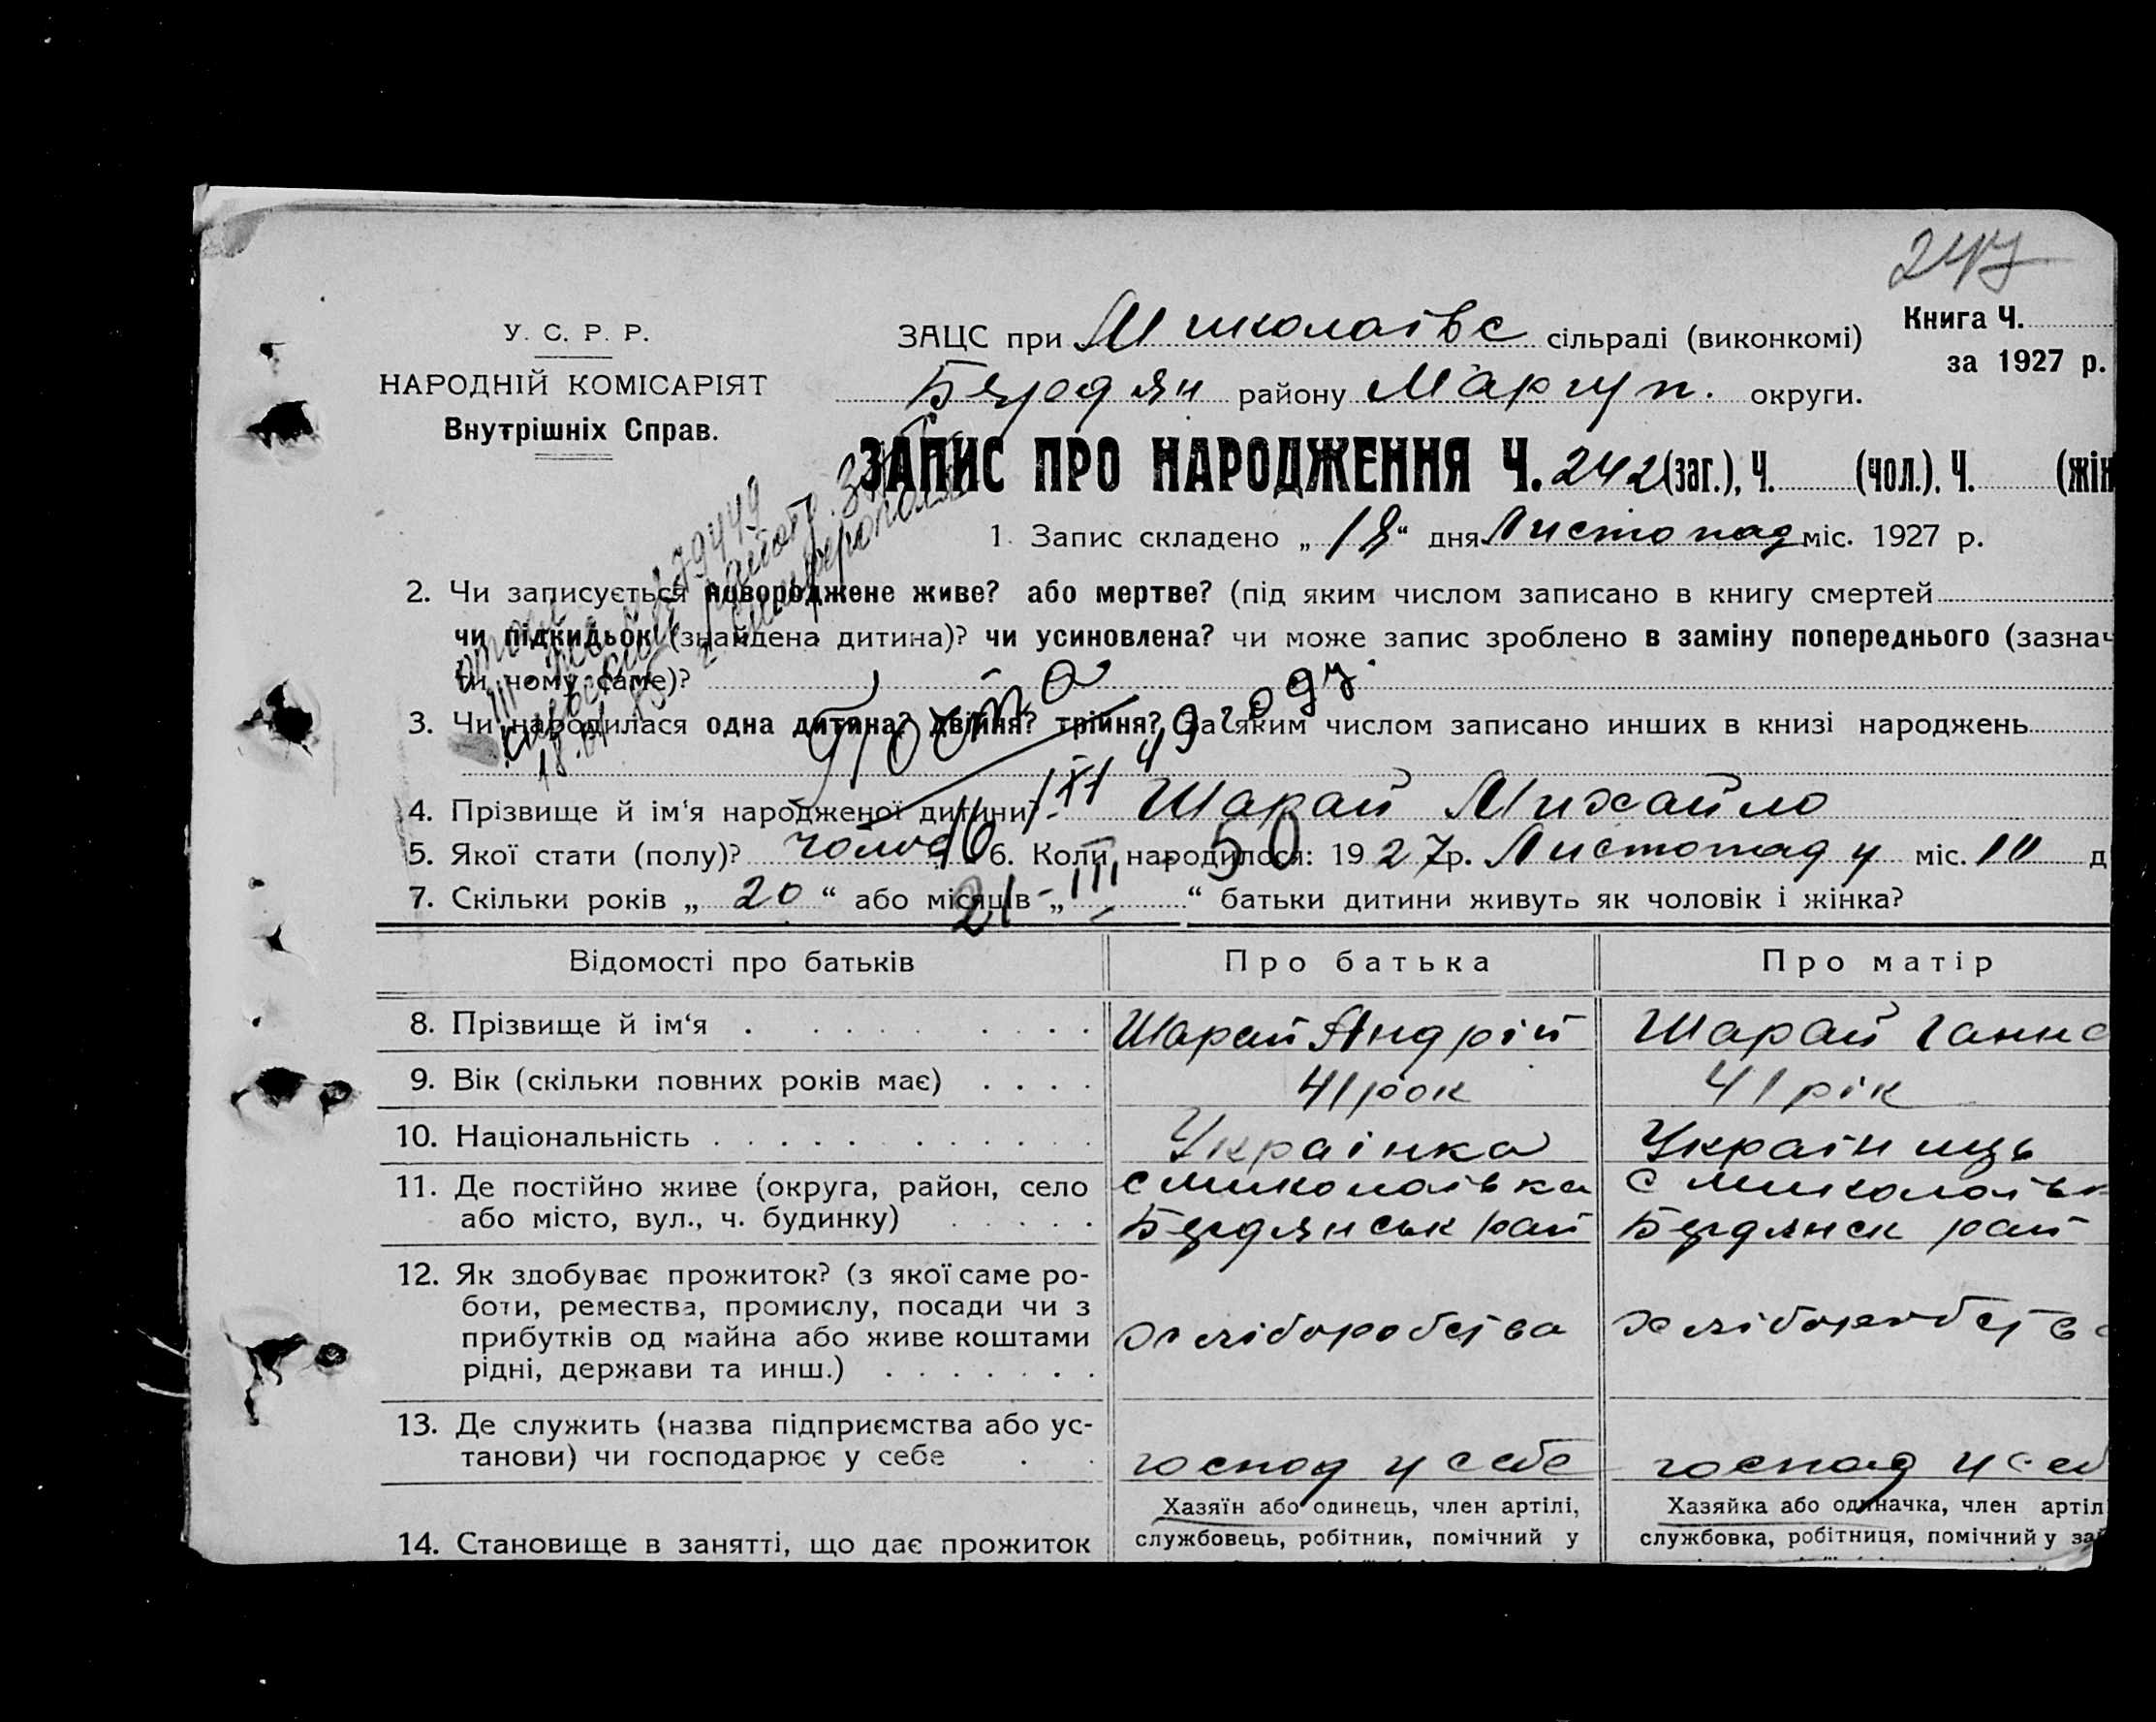 247
У. С. Р. Р.
НАРОДНІЙ КОМІСАРІЯТ
Внутрішніх Справ.
ЗАЦС при Миколаївс сільраді (виконкомі)
Книга Ч.
за 1927 р.
Бердян району Маріуп. округи.
ЗАПИС ПРО НАРОДЖЕННЯ Ч. 242 (заг.), Ч. (чол.). Ч. (жін
1. Запис складено „ 18 “ дня Листопад міс. 1927 р.
2. Чи записується новороджене живе? або мертве? (під яким числом записано в книгу смертей
чи підкидьок (знайдена дитина)? чи усиновлена? чи може запис зроблено в заміну попереднього (зазнач
ти чому саме)?
3. Чи народилася одна дитина? двійня? трійня? За яким числом записано инших в книзі народжень
4. Прізвище й ім‘я народженої дитини? Шарай Михайло
5. Якої стати (полу)? чолов 6. Коли народилося: 1927р. Листопаду міс. 10 д
7. Скільки років „ 20 “ або місяців „ “ батьки дитини живуть як чоловік і жінка?
21 - III - 50
Відомості про батьків Про батька Про матір
8. Прізвище й ім‘я Шарай Андрій Шарай Ганна
9. Вік (скільки повних років має) 41 рок 41 рік
10. Національність Українка Українщь
11. Де постійно живе (округа, район, село с Миколаївка с Миколаївк
або місто, вул., ч. будинку) Бердянськ рай Бердянск рай
12. Як здобуває прожиток? (з якої саме ро-
боти, ремества, промислу, посади чи з
прибутків од майна або живе коштами хліборобства хліборобства
рідні, держави та инш.)
13. Де служить (назва підприємства або ус-
танови) чи господарює у себе господ у себе господ у себ
Хазяїн або одинець, член артілі, Хазяйка або одиначка, член артіл
14. Становище в занятті, що дає прожиток службовець, робітник, помічний у службовка, робітниця, помічний у за